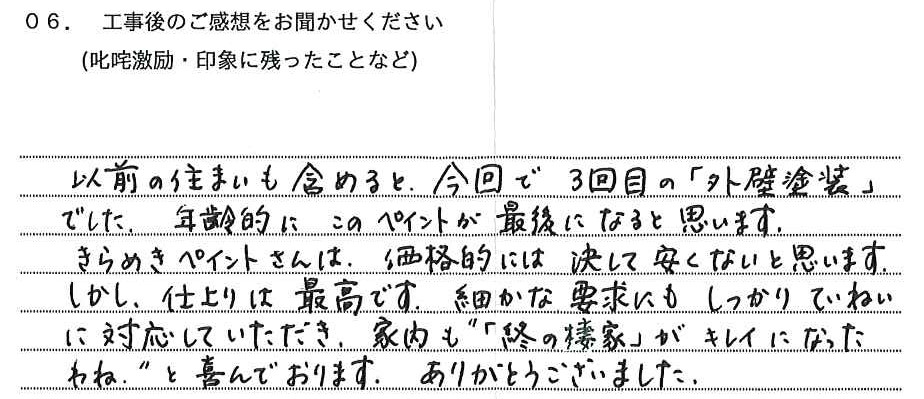 06. 工事後のご感想をお聞かせください
(叱咤激励・印象に残ったことなど)
以前の住まいも含めると、今回で 3回目の「外壁塗装」
でした。年齢的に このペイントが 最後になると思います。
きらめきペイントさんは、価格的には 決して安くないと思います。
しかし、仕上りは 最高です。細かな要求にも しっかりていねい
に対応していただき、家内も"「終の棲家」がキレイになった
わね."と喜んでおります。ありがとうございました。